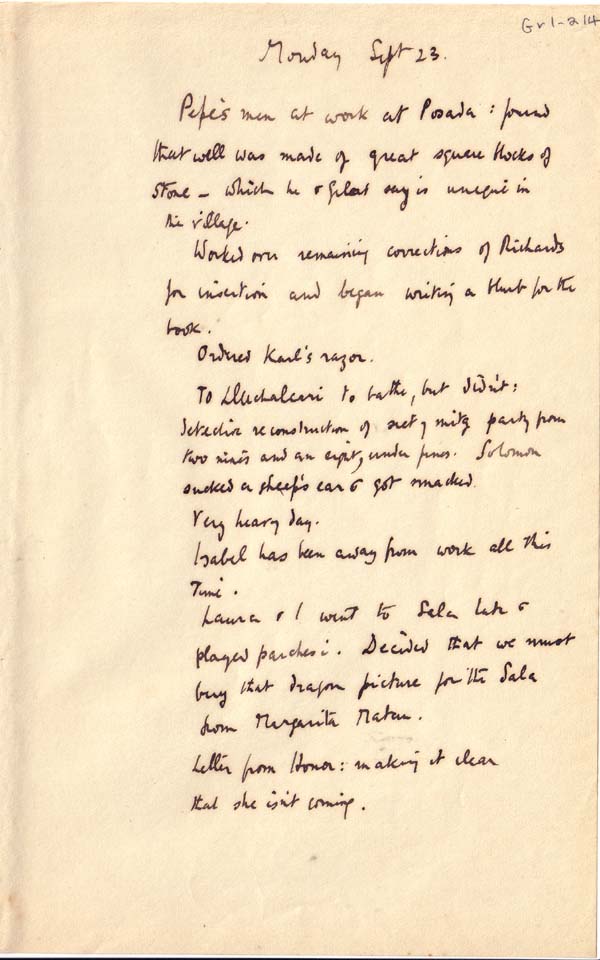 Gr1-214
Monday Sept 23.
Pepe's men at work at Posada: found
that well was made of great square blocks of
stone – which he & Gelat say is unique in
the village.
Worked over remaining corrections of Richards
for insertion and began writing a blurb for the
book.
Ordered Karl's razor.
To Lluchalcari to bathe, but didn't:
detective reconstruction of party from
two nines and an eight, under pines. Solomon
sucked a sheep's ear & got smacked.
Very heavy day.
Isabel has been away from work all this
time.
Laura & I went to Sala late &
played parchesi. Decided that we must
buy that dragon picture for the Sala
from Margarita Matau.
Letter from Honor: making it clear
that she isn't coming.